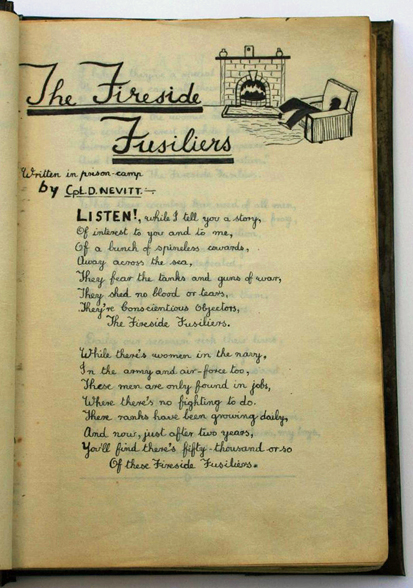 The Fireside
Fusiliers
Written in prison-camp
by Cpl. D. NEVITT.
LISTEN!, while I tell you a story,
Of interest to you and to me,
Of a bunch of spineless cowards,
Away across the sea,
They fear the tanks and guns of war,
They shed no blood or tears,
They're Conscientious Objectors,
The Fireside Fusiliers.
While there's women in the navy,
In the army and air-force too,
These men are only found in jobs,
Where there's no fighting to do.
There ranks have been growing daily,
And now, just after two years,
You'll find there's fifty-thousand or so
Of these Fireside Fusiliers.